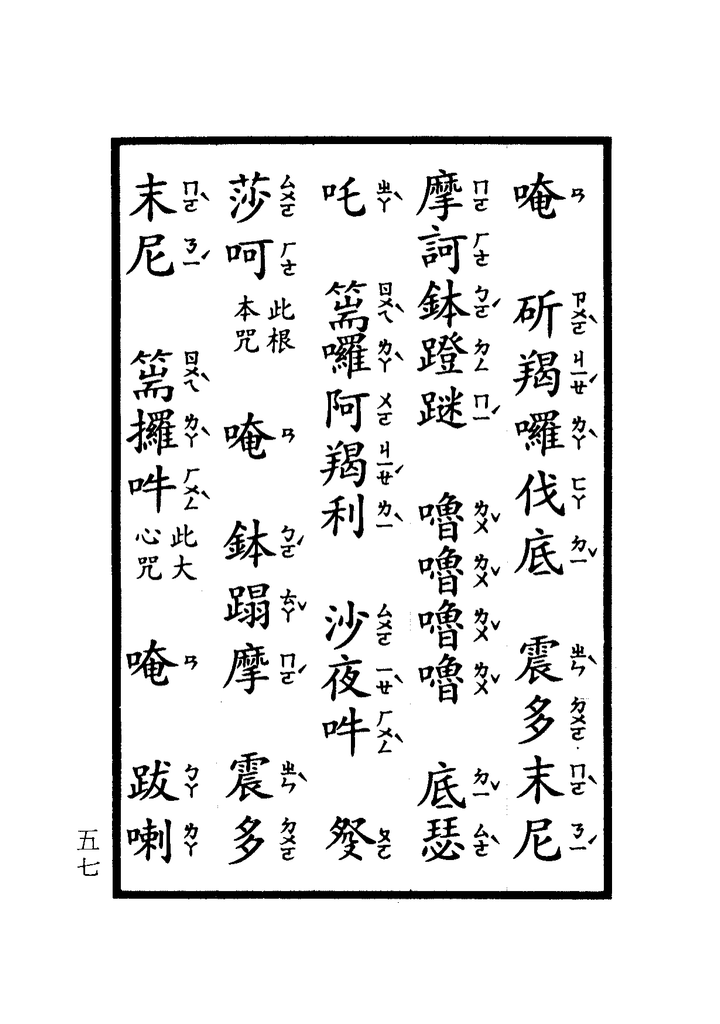 唵ㄢ 斫ㄓㄨㄛˋ羯ㄐㄧㄝˊ囉ㄌㄚˋ伐ㄈㄚ底ㄉㄧˇ 震ㄓㄣˋ多ㄉㄨㄛ末ㄇㄛˋ尼ㄋㄧˊ
摩ㄇㄛ訶ㄏㄜ鉢ㄅㄛˊ蹬ㄉㄥ謎ㄇㄧˊ 嚕ㄌㄨˇ嚕ㄌㄨˇ嚕ㄌㄨˇ嚕ㄌㄨˇ 底ㄉㄧˇ瑟ㄙㄜˋ
吒ㄓㄚˋ 篅ㄖㄨㄟˋ囉ㄌㄚˋ阿ㄨㄛ羯ㄐㄧㄝˊ利ㄌㄧˋ 沙ㄙㄨㄛ夜ㄧㄝˋ吽ㄏㄨㄥˋ 發ㄆㄛ
莎ㄙㄨㄛ呵ㄏㄜ 此根本咒 唵ㄢ 鉢ㄅㄛˊ蹋ㄊㄚˇ摩ㄇㄛˊ 震ㄓㄣˋ多ㄉㄨㄛ
末ㄇㄛˋ尼ㄋㄧˊ 篅ㄖㄨㄟˋ攞ㄌㄚˋ吽ㄏㄨㄥˋ 此大心咒 唵ㄢ 跋ㄅㄚ喇ㄌㄚ
五七